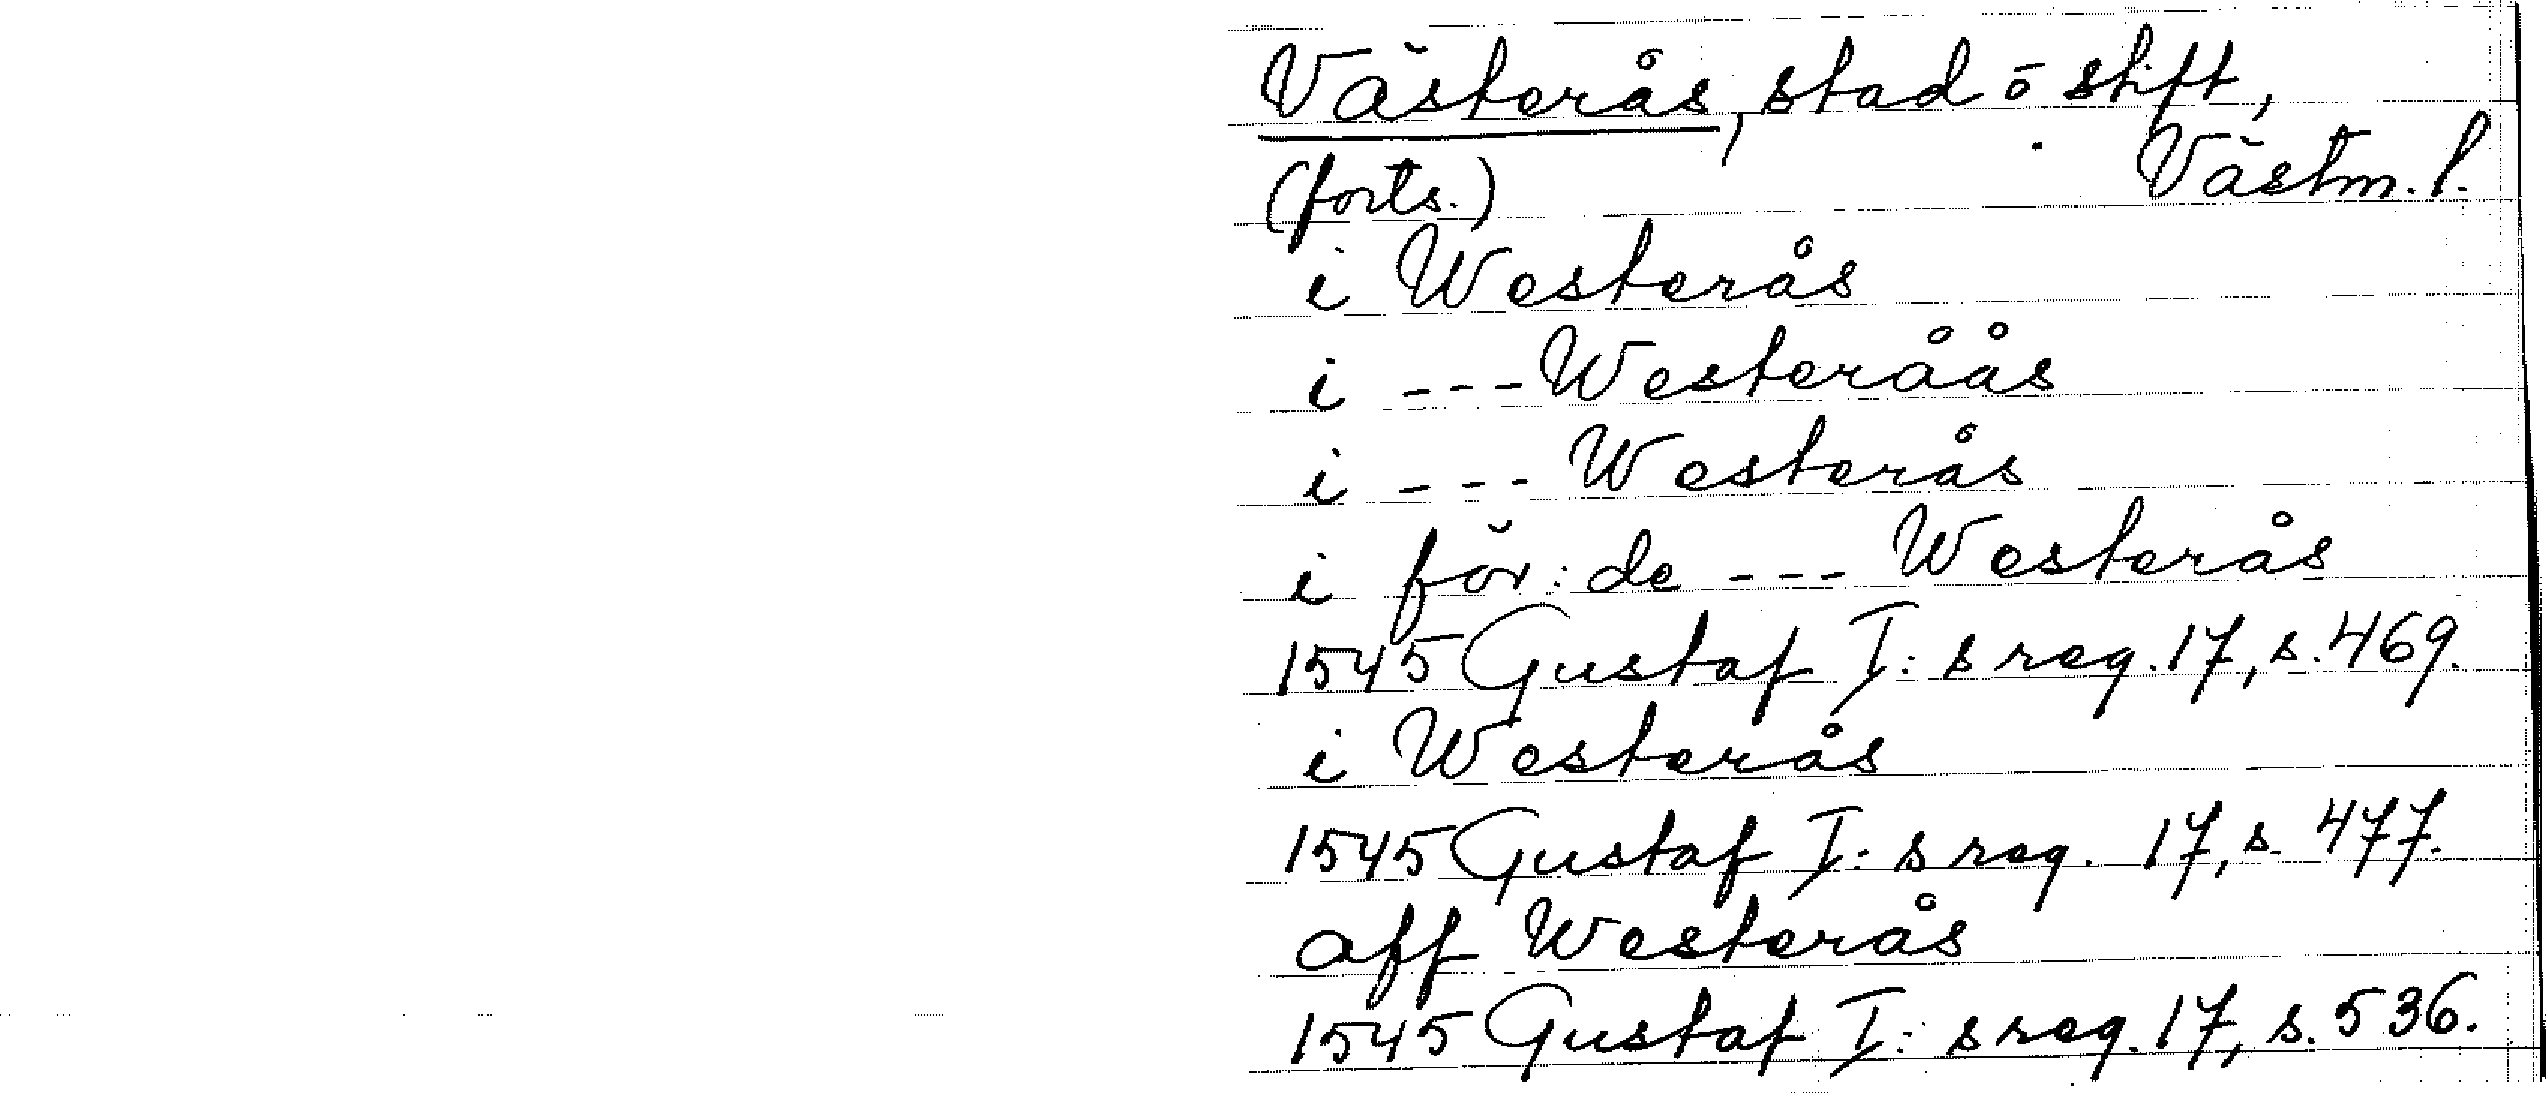 Västerås, stad ō stift,
(forts.) Västm. l.
i Westerås
i --- Westeråås
i --- Westerås
i för: de --- Westerås
1545 Gustaf I: s reg. 17, s. 469.
i Westerås
1545 Gustaf I: s reg. 17, s. 477.
aff Westerås
1545 Gustaf I: s reg. 17, s. 536.